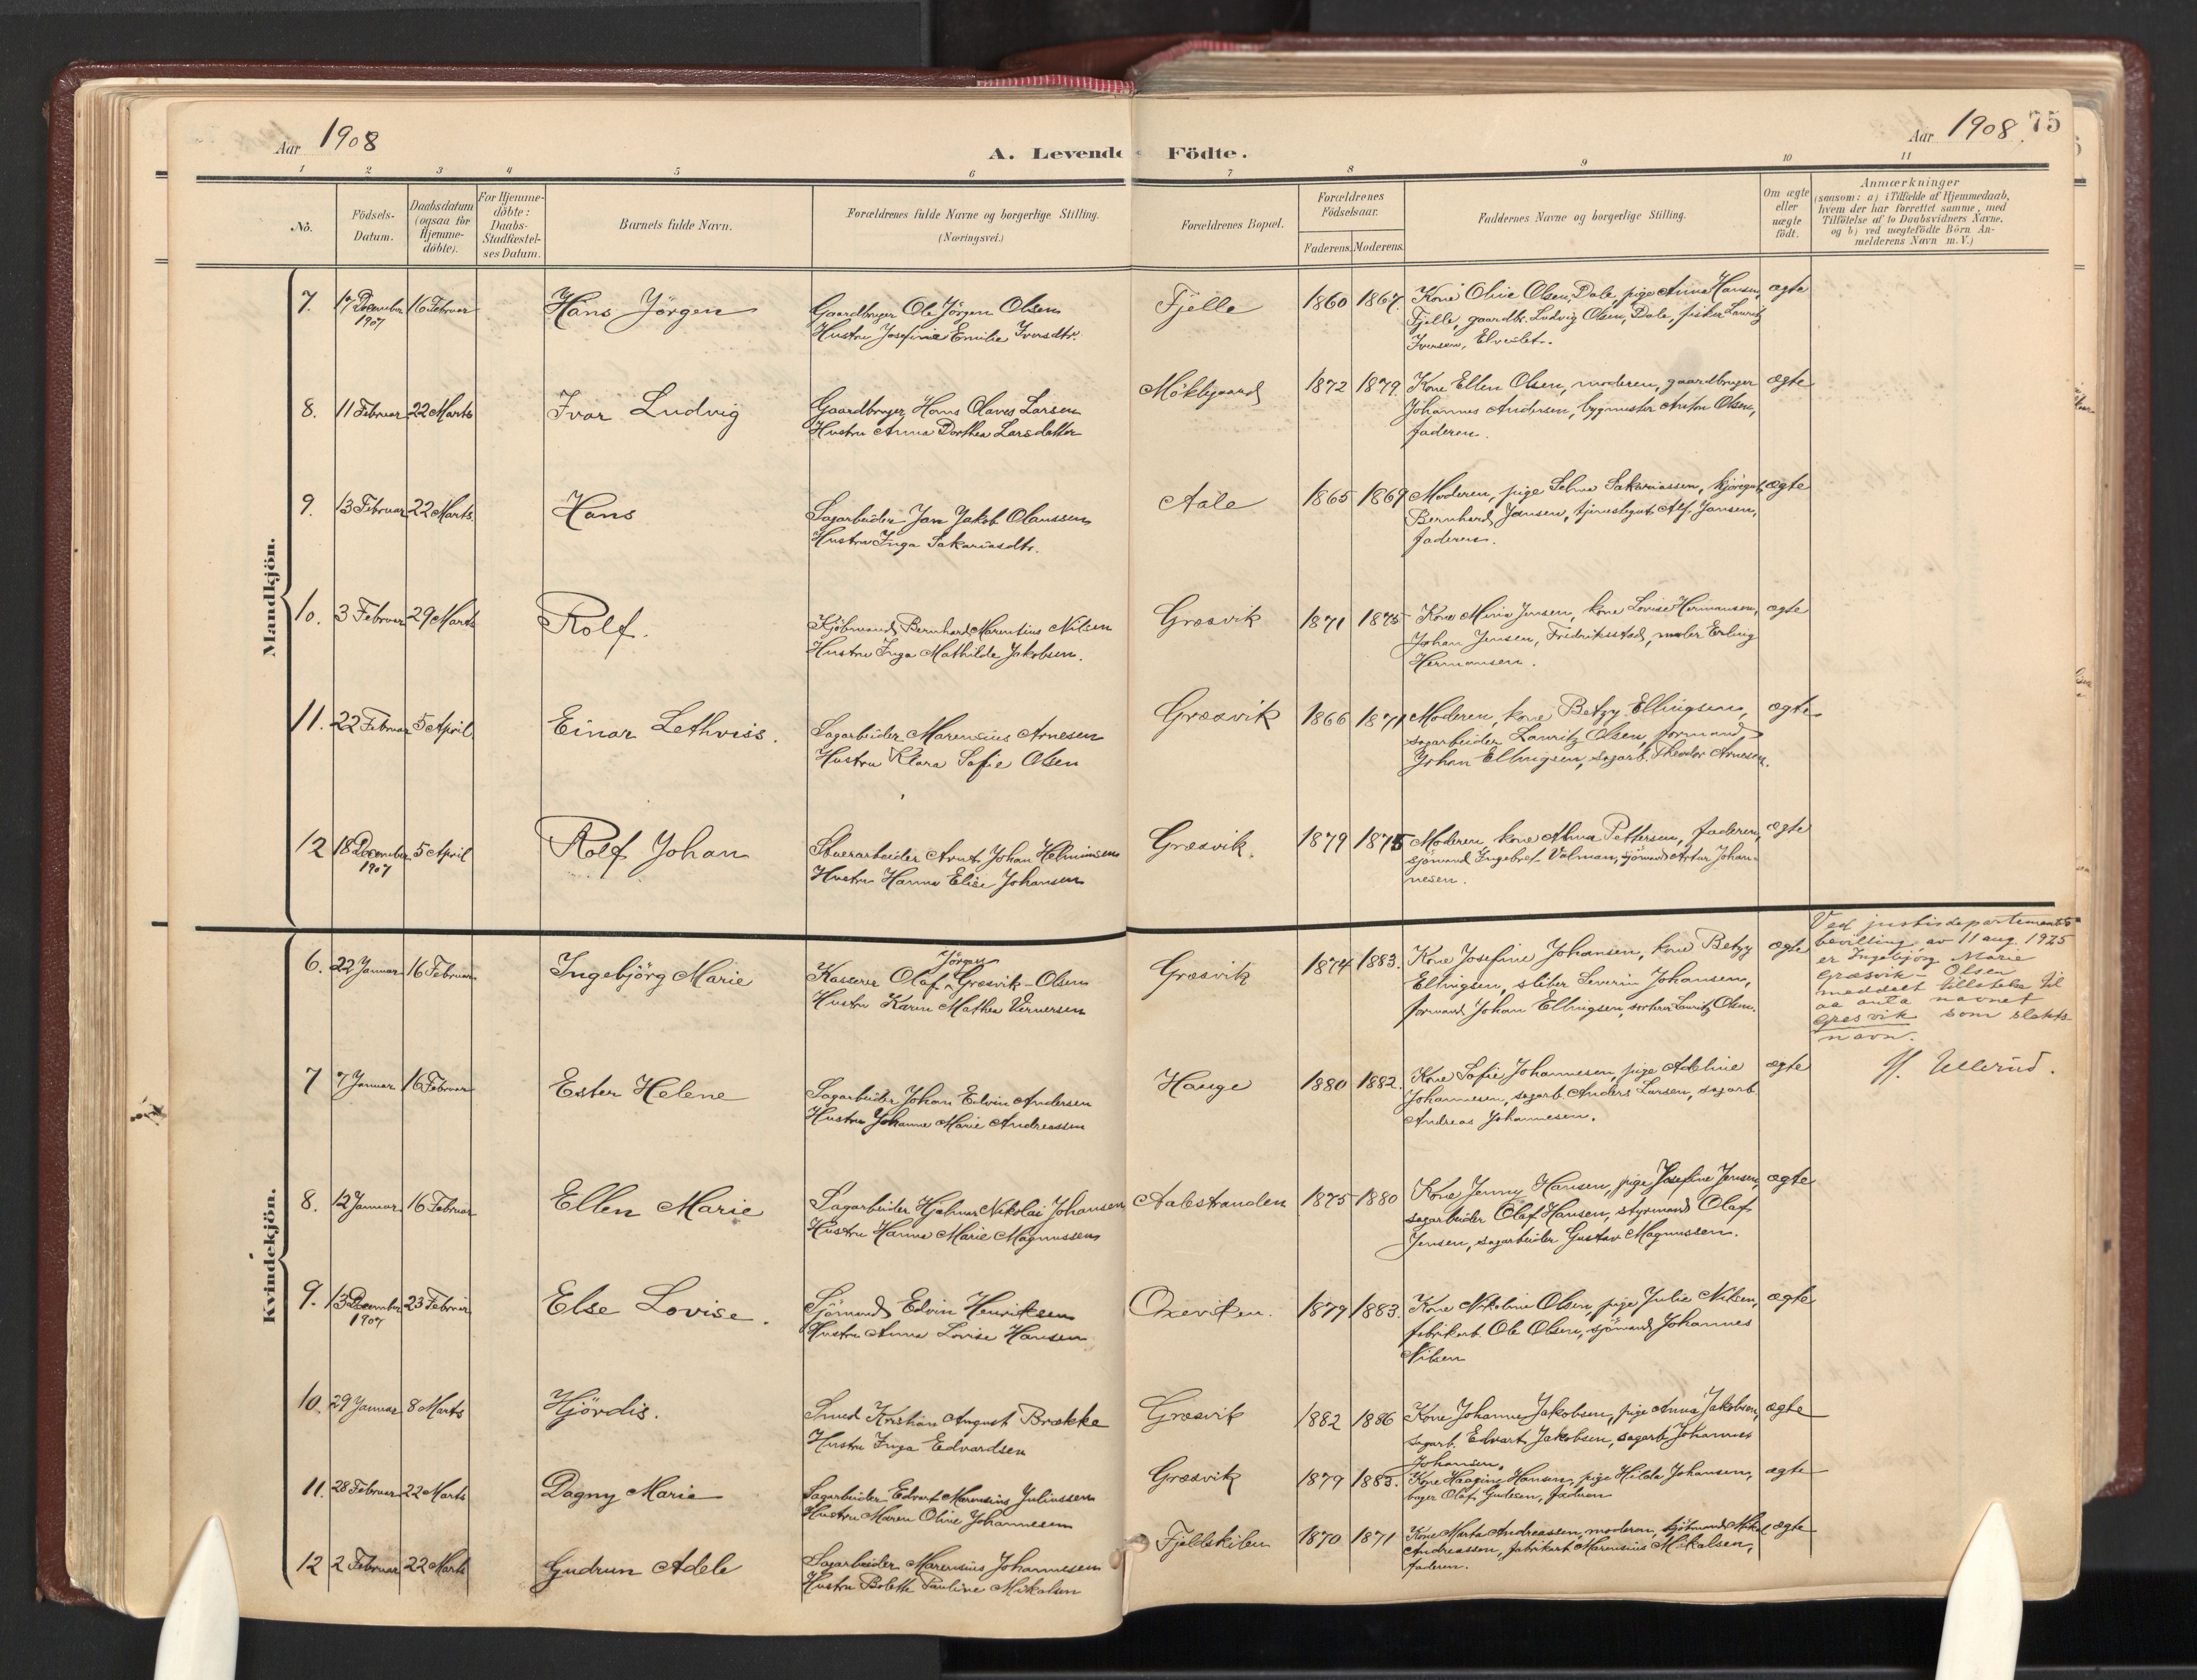 Aar 1908
A. Levende Födte.
Aar 1908. 75
1 2 3 4 5 6 7 8 9 10 11
No.
Födsels-Datum.
Daabsdatum (ogsaa for Hjemme-döbte).
For Hjemme-döbte: Daabs-Stadfæstel-ses Datum.
Barnets fulde Navn.
Forældrenes fulde Navne og borgerlige Stilling.
(Næringsvei.)
Forældrenes Bopæl.
Forældrenes Födselsaar.
Faderens. Moderens.
Faddernes Navne og borgerlige Stilling.
Om ægte eller uægte födt.
Anmærkninger
(saasom: a) i Tilfælde af Hjemmedaab,
hvem der har forrettet samme, med
Tilföielse af to Daabsvidners Navne,
og b) ved uægtefödte Börn An-
melderens Navn m. V.)
Mandkjön.
7. 17 December 1907 16 Februar Hans Jörgen Gaardbruger Ole Jörgen Olsen Fjelle 1860 1867. Kone Oline Olsen, Dale, pige Anna Hansen, ægte
Hustru Josefine Emilie Iversdtr. Fjelle, gaardbr. Ludvig Olsen, Dale, fisker Lauritz
Iversen,
8. 11 Februar 22 Marts Ivar Ludvig Gaardbruger Hans Olaves Larsen Möklegaard 1872 1879. Kone Ellen Olsen, moderen, gaardbruger ægte
Hustru Anna Dorthea Larsdatter Johannes Andersen, bygmester Anton Olsen,
faderen.
9. 13 Februar 22 Marts. Hans Sagarbeider Jan Jakob Olaussen Aale 1865 1869 Moderen, pige Selma Sakariassen, ægte
Hustru Inga Sakariasdtr. Bernhard Jansen, tjenestegut Alf. Jansen,
faderen.
10. 3 Februar 29 Marts Rolf. Kjöbmand Bernhard Marentius Nilsen Græsvik 1871 1875 Kone Mina Jensen, kone Lovise Hermansen, ægte
Hustru Inga Mathilde Jakobsen. Johan Jensen, Fredriksstad, maler Erling
Hermansen.
11. 22 Februar 5 April Einar Lethviss. Sagarbeider Marensius Arnesen Græsvik 1866 1871 Moderen, kone Betzy Ellingsen, ægte
Hustru Klara Sofie Olsen sagarbeider Lauritz Olsen, formand
Johan Ellingsen, sagarb. Theodor Arnesen.
12 18 December 1907 5 April Rolf Johan Stuerarbeider Arnt Johan Græsvik. 1879 1875 Moderen, kone Alma Pettersen, faderen, ægte
Hustru Hanna Elise Johansen sjömand Ingebret Valman, sjömand Artur Johan-
nesen.
Kvindekjön.
6. 22 Januar 16 Februar Ingebjörg Marie Kasserer Olaf Jörgen Græsvik-Olsen Græsvik 1874 1883. Kone Josefine Johansen, kone Betzy ægte
Hustru Karen Mathea Ellingsen, sliber Severin Johansen,
formand Johan Ellingsen, Lauritz Olsen.
Ved justisdepartementets
bevilling av 11 aug. 1925
er Ingebjørg Marie
Græsvik-Olsen
meddelt tillatelse til
aa anta navnet
Gresvik som slekts
navn.
Ullerud.
7 7 Januar 16 Februar Ester Helene Sagarbeider Johan Edvin Andersen Hauge 1880 1882. Kone Sofie Johannesen, pige Adeline ægte
Hustru Johanne Marie Andreassen Johannesen, sagarb. Anders Larsen, sagarb.
Andreas Johannesen.
8. 12 Januar 16 Februar Ellen Marie Sagarbeider Hjalmar Nikolai Johansen Aalestranden 1875 1880 Kone Jenny Hansen, pige Josefine Jensen, ægte
Hustru Hanna Marie Magnussen sagarbeider Olaf Hansen, styrmand Olaf
Jensen, sagarbeider Gustav Magnussen.
9. 13 December 1907 23 Februar Else Lovise. Sjömand Edvin Henriksen Oxeviken. 1879 1883. Kone Nikoline Olsen, pige Julie Nilsen, ægte
Hustru Anna Lovise Hansen fabrikarb. Ole Olsen, sjömand Johannes
Nilsen
10. 29 Januar 8 Marts Hjördis. Smed Kristian August Brække Græsvik 1882 1886 Kone Johanne Jakobsen, pige Anna Jakobsen, ægte
Hustru Inga Edvardsen sagarb. Edvart Jakobsen, sagarb. Johannes
Johansen.
11. 28 Februar 22 Marts Dagny Marie Sagarbeider Edvart Marensius Juliussen Græsvik 1879 1883. Kone Haagine Hansen, pige Hilda Johansen, ægte
Hustru Maren Oline Johannesen bager Olaf faderen
12 2 Februar 22 Marts Gudrun Adele Sagarbeider Marensius Johannesen Fjeldskilen 1870 1871 Kone Marta Andreassen, moderen, kjöbmand Mikal ægte
Hustru Bolette Pauline Mikalsen Andreassen, fabrikarb. Marensius Mikalsen,
faderen.